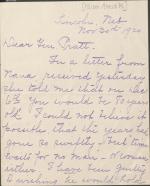 Lincoln, Neb
Nov 30th 1920
Dear Gen Pratt.
In a letter from
Nana received yesterday
she told me that on Dec
6th you would be 80 years
old. I could not believe it
possible that the years had
gone so swiftly. But time
waits for no man, or woman
either. I have been guilty
in wishing he would hold